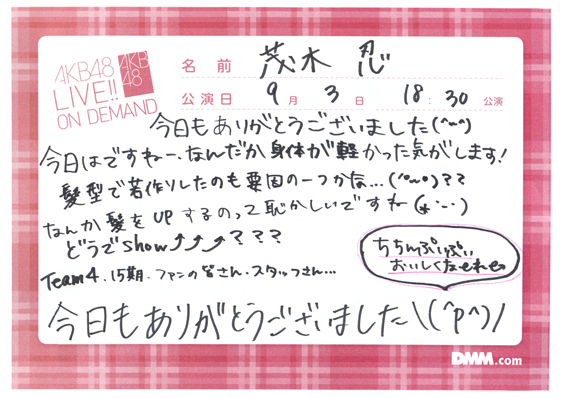 AKB48
LIVE!!
ON DEMAND
AKB
48
名前 茂木 忍
公演日 9月 3日 18:30 公演
今日もありがとうございました(^~^)
今日はですねー、なんだか身体が軽かった気がします!
髪型で若作りしたのも要因の一つかな...(^~°)??
なんか髪をUPするのって恥かしいですねー(*・-・)
どうでshow↑↑↑???
ちちんぷいぷい
おいしくなぁれ
Team4、15期、ファンの皆さん、スタッフさん...
今日もありがとうございました\(^p^)/
DMM.com